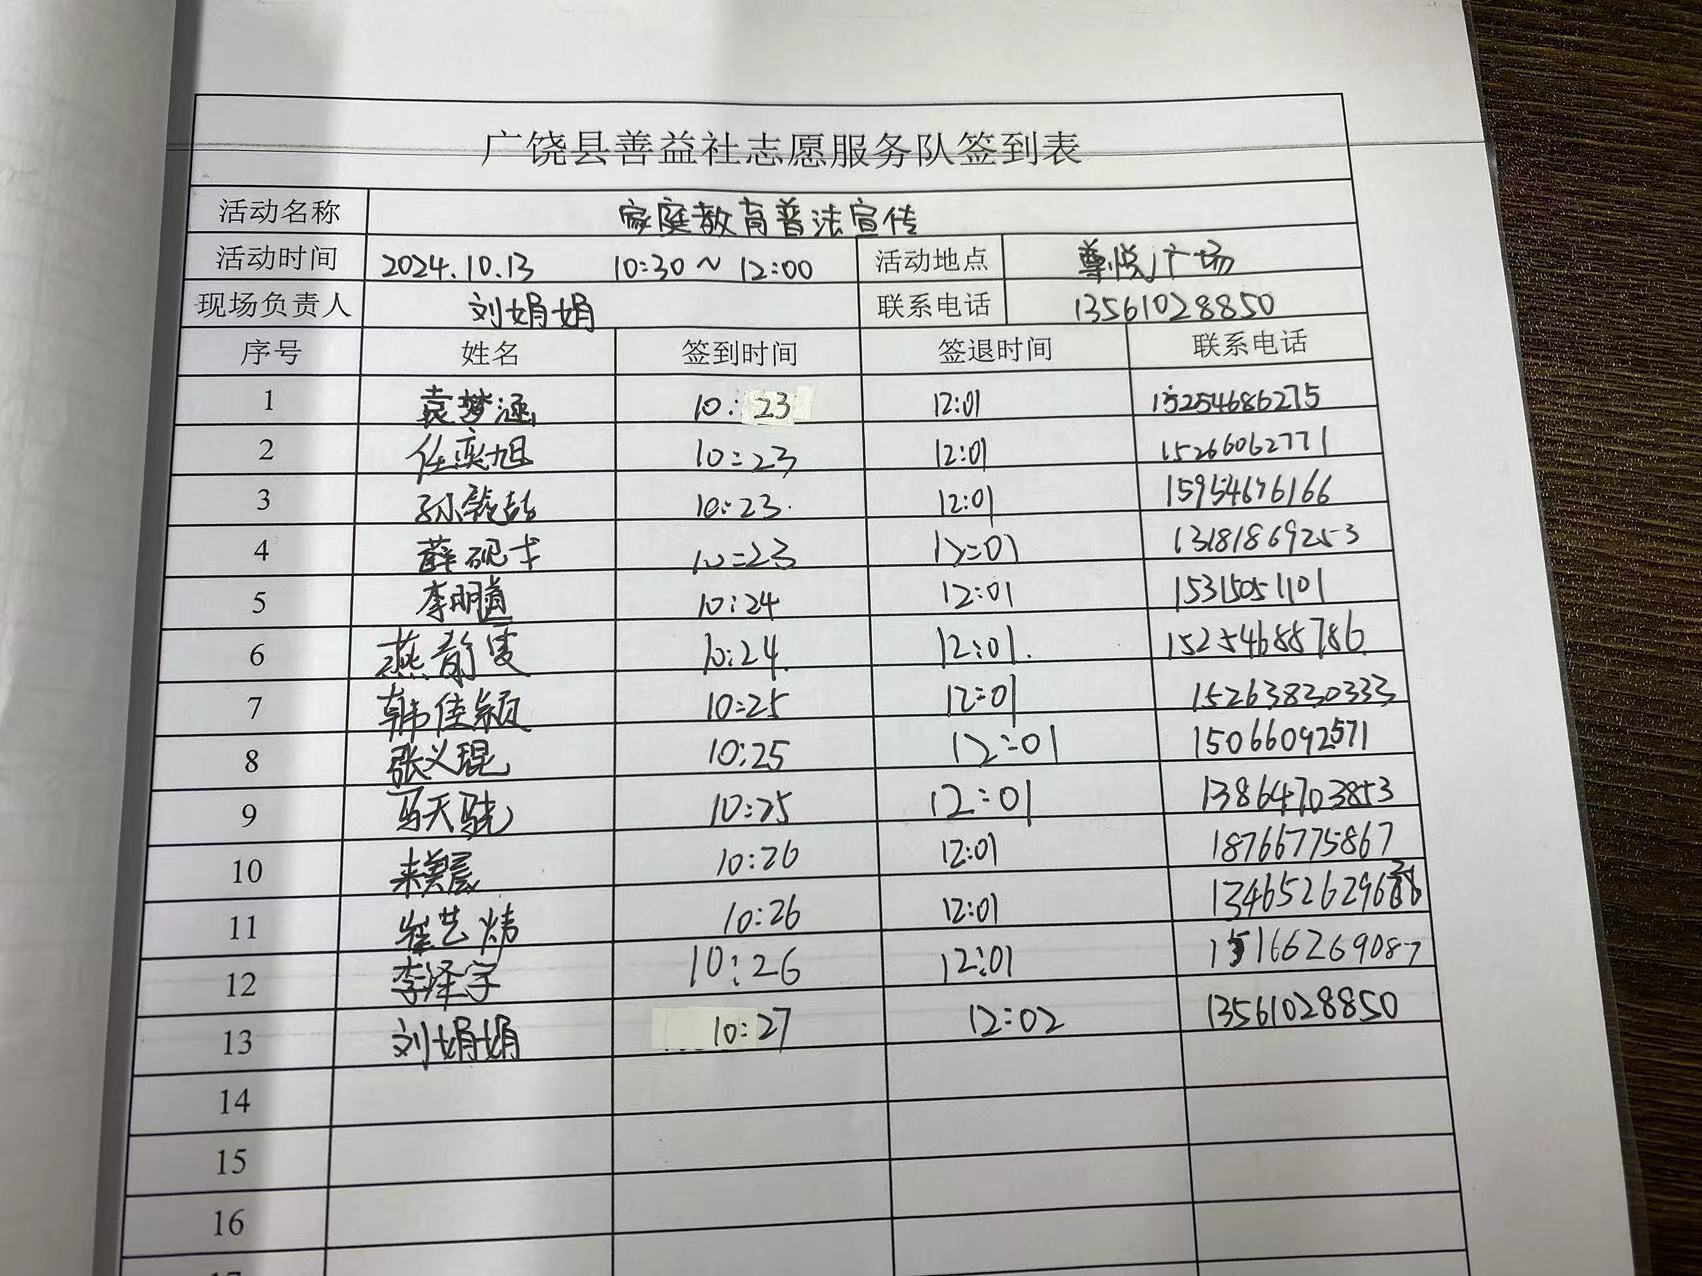 广饶县善益社志愿服务队签到表
活动名称 家庭教育普法宣传
活动时间 2024.10.13 10:30~12:00 活动地点 尊悦广场
现场负责人 刘娟娟 联系电话 13561028850
序号 姓名 签到时间 签退时间 联系电话
1 袁梦涵 10:23 12:01 15254686275
2 任奕旭 10:23 12:01 15266062771
3 10:23 12:01 15954676166
4 薛砚卡 10:23 12:01 13181869253
5 李明道 10:24 12:01 15315051101
6 燕 10:24 12:01 15254688786
7 韩佳颖 10:25 12:01 15263830333
8 张义琨 10:25 12:01 15066092571
9 马天骁 10:25 12:01 13864703853
10 10:26 12:01 18766775867
11 崔艺炜 10:26 12:01
12 李泽宇 10:26 12:01 15166269087
13 刘娟娟 10:27 12:02 13561028850
14
15
16